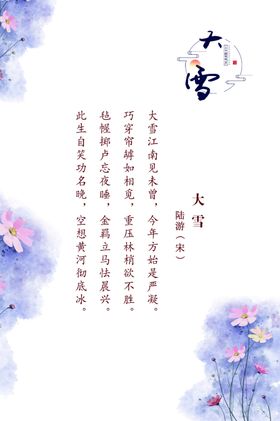 大雪
大雪
陆游（宋）
大雪江南见未曾，今年方始是严凝。
巧穿帘罅如相觅，重压林梢欲不胜。
毡幄掷卢忘夜睡，金羁立马怯晨兴。
此生自笑功名晚，空想黄河彻底冰。